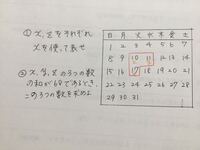 ① x, zをそれぞれ
xを使って表せ
② x, y, zの3つの数
の和が68であるとき,
この3つの数を求めよ
日 月 火 水 木 金 土
1 2 3 4 5 6 7
8 9 10 11 12 13 14
15 16 17 18 19 20 21
22 23 24 25 26 27 28
29 30 31